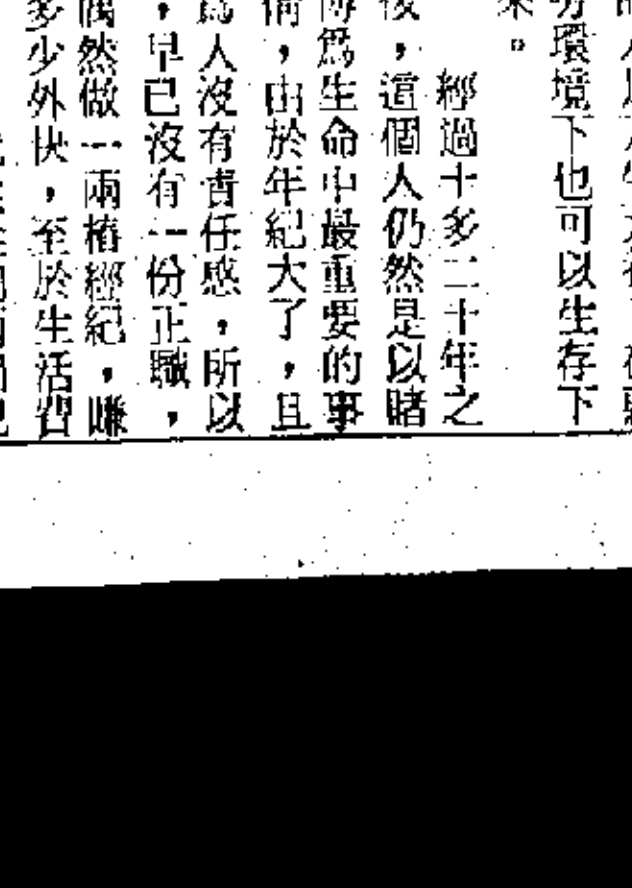 環境下也可以生存下
來。
經過十多二十年之
後，這個人仍然是以賭
博為生命中最重要的事
情，由於年紀大了，且
為人沒有責任感，所以
，早已沒有一份正職，
偶然做一兩樁經紀，賺
多少外快，至於生活習